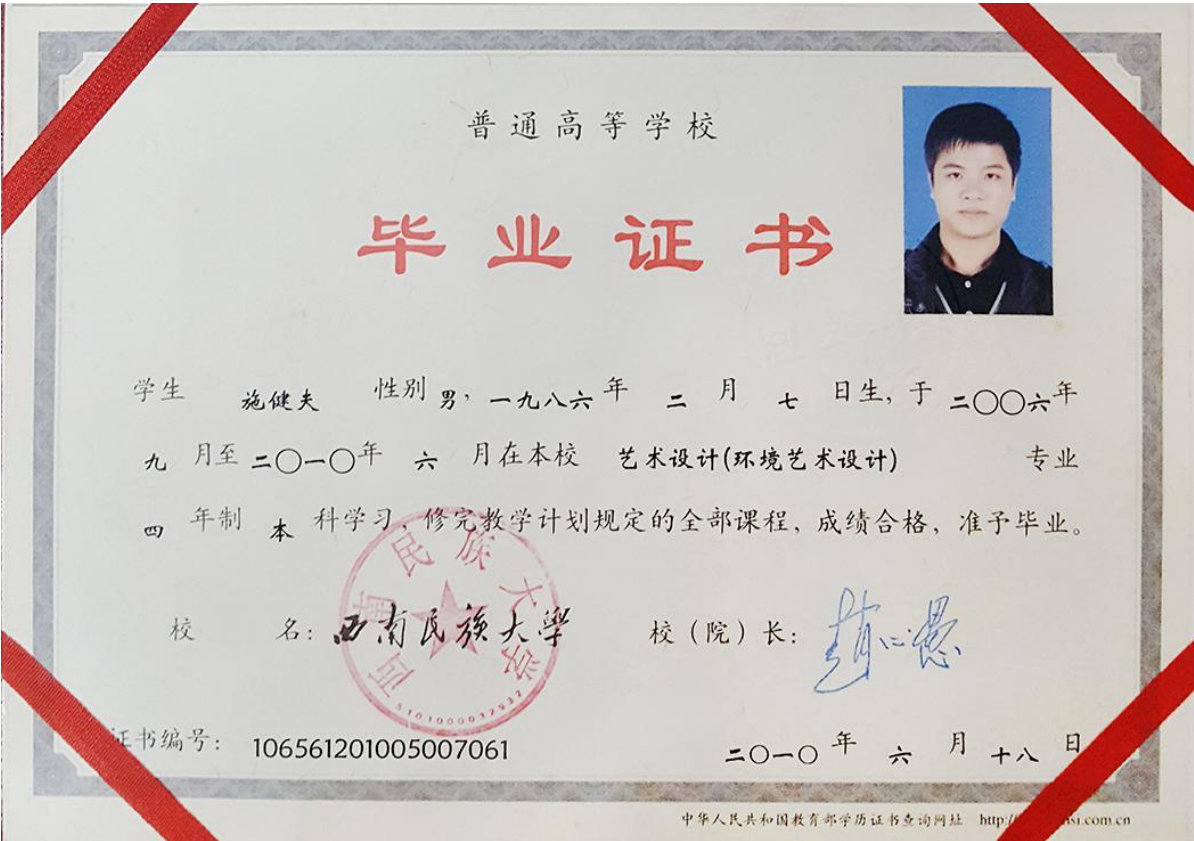 普通高等学校
毕业证书
学生 施健夫 性别 男，一九八六年 二 月 七 日生，于 二〇〇六年
九 月至 二〇一〇年 六 月在本校 艺术设计(环境艺术设计) 专业
四 年制 本 科学习，修完教学计划规定的全部课程，成绩合格，准予毕业。
校 名：西南民族大學 校（院）长：赵心愚
西南民族大学
5101000032932
证书编号：106561201005007061
二〇一〇 年 六 月 十八 日
中华人民共和国教育部学历证书查询网址 http:// si.com.cn